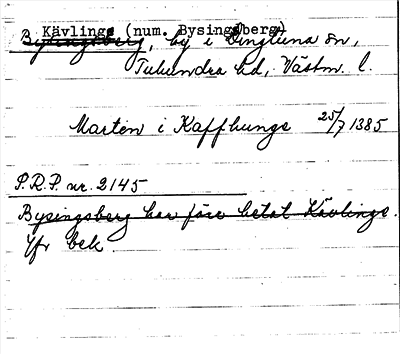 Kävlings (num. Bysingsberg)
Bysingsberg, by i Lingtuna sn,
Tuhundra hd, Västm. l.
Marten i Kaffhungs 25/7 1385
P.R.P. nr. 2145
Bysingsberg har förr hetat Kävlinge.
Yfr bek.